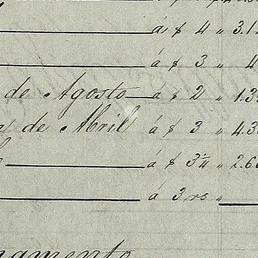 á $ 4 " 3.1
á $ 3 " 4
de Agosto á $ 2 " 1.3
de Abril á $ 3 " 4.3
á $ 3¼ " 2.6
á 3 rs "
amento